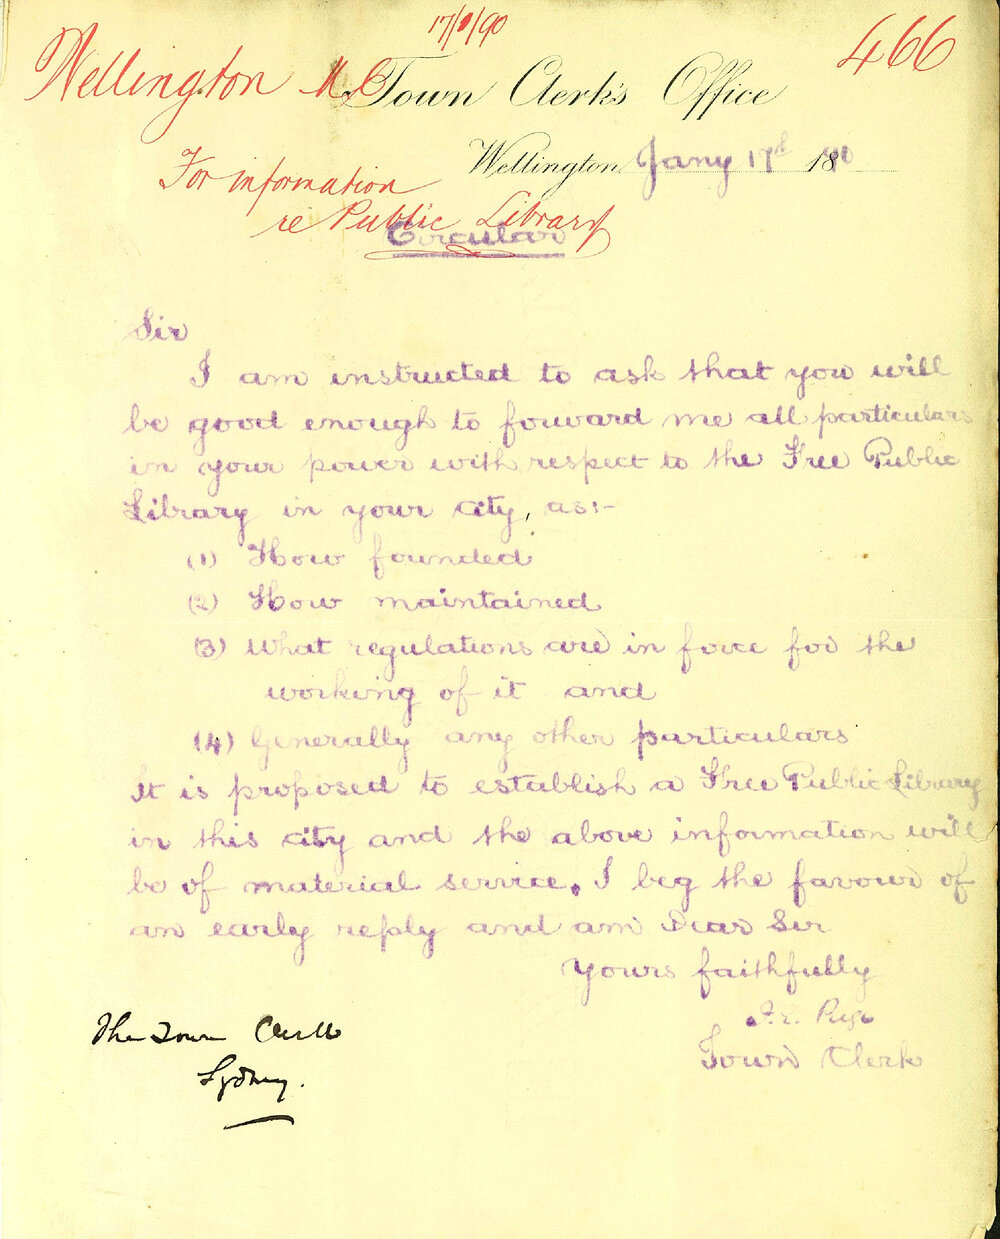 17/1/90
466
Wellington M.C.
Town Clerk's Office
Wellington, Jany 17th 1890
For information
re Public Library
Circular
Sir
I am instructed to ask that you will
be good enough to forward me all particulars
in your power with respect to the Free Public
Library in your city, as:-
(1) How founded
(2) How maintained
(3) What regulations are in force for the
working of it and
(4) Generally any other particulars
It is proposed to establish a Free Public Library
in this city and the above information will
be of material service. I beg the favour of
an early reply and am Dear Sir
Yours faithfully
Town Clerk
The Town Clerk
Sydney.